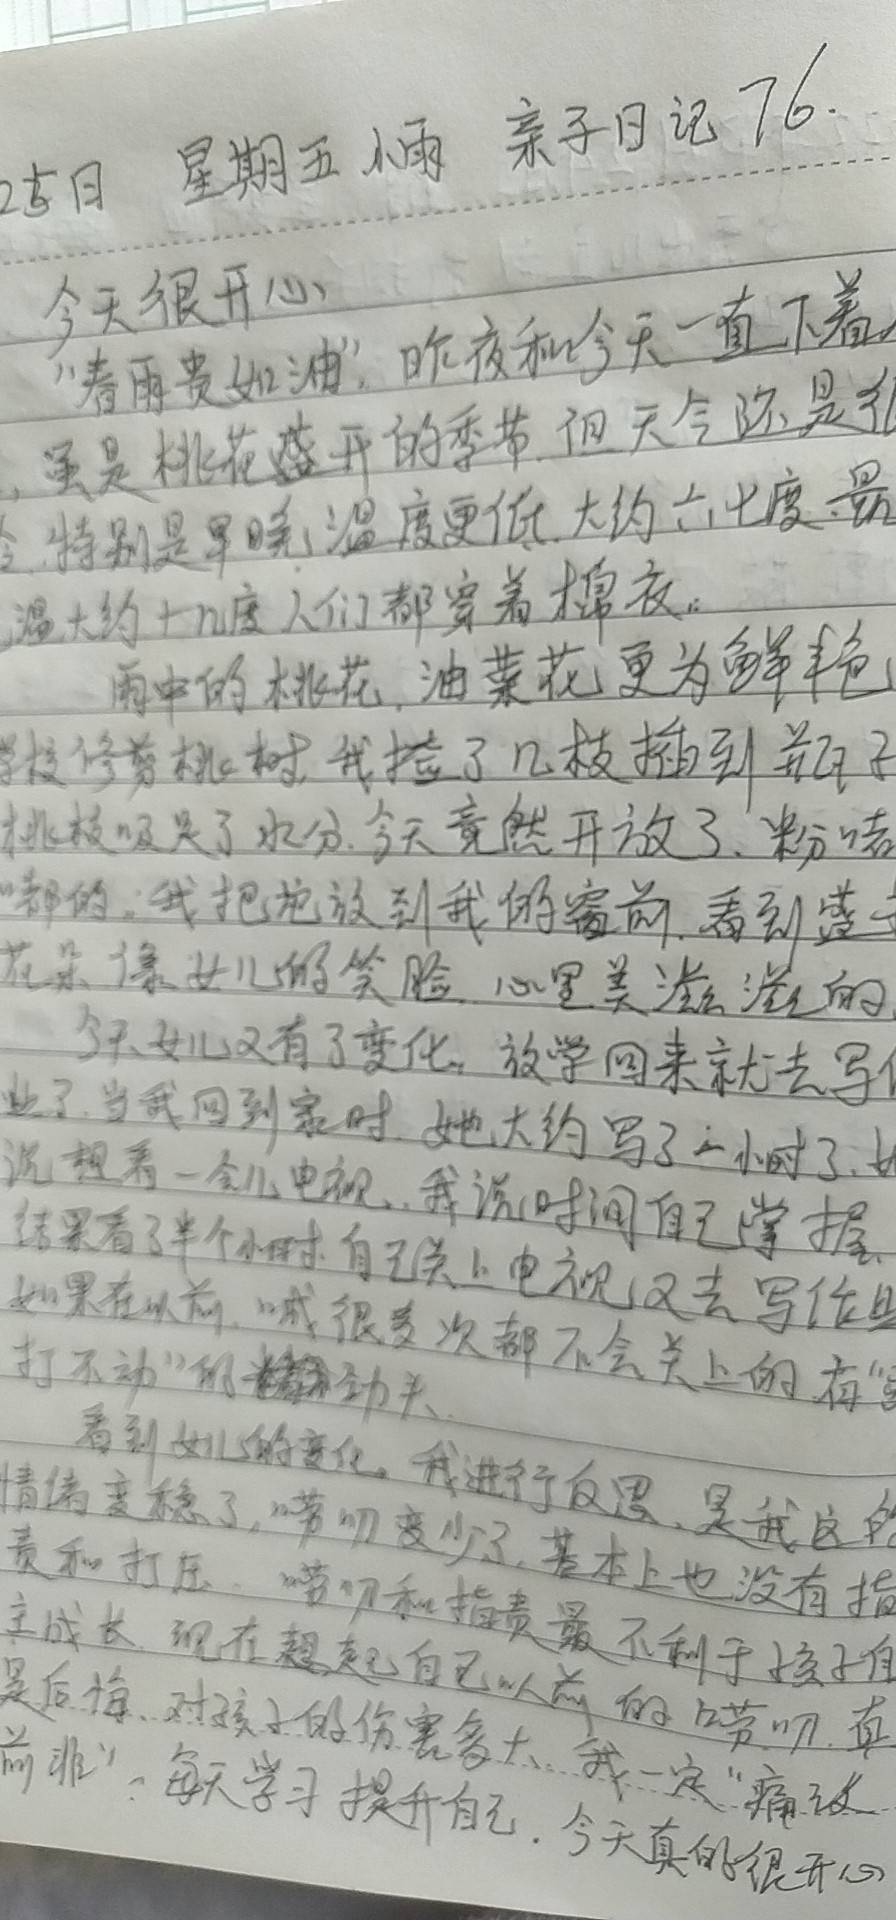 25日 星期五 小雨 亲子日记 76.
今天很开心
"春雨贵如油",昨夜和今天一直下着
,虽是桃花盛开的季节,但天今际是很
冷,特别是早晚,温度更低,大约六七度,最
温大约十几度,人们都穿着棉衣。
雨中的桃花,油菜花更为鲜丰色
学校修剪桃树,我捡了几枝插到瓶子
桃枝吸足了水分,今天竟然开放了、粉嘟
嘟的。我把它放到我的窗前,看到盛开
花朵像女儿的笑脸,心里美滋滋的,
今天女儿又有了变化,放学回来就去写作
业了,当我回到家时,她大约写了一小时了,她
说想看一会儿电视,我说时间自己掌握,
结果看了半个小时,自己关上电视,又去写作业
如果在以前,喊很多次都不会关上的,有"雷
打不动"的劲头,
看到女儿的变化,我进行反思,是我这的
情绪变稳了,唠叨变少了,基本上也没有指
责和打压,唠叨和指责最不利于孩子自
主成长,现在想起自己以前的唠叨,真
是后悔,对孩子的伤害多大,我一定"痛改
前非",每天学习提升自己,今天真的很开心